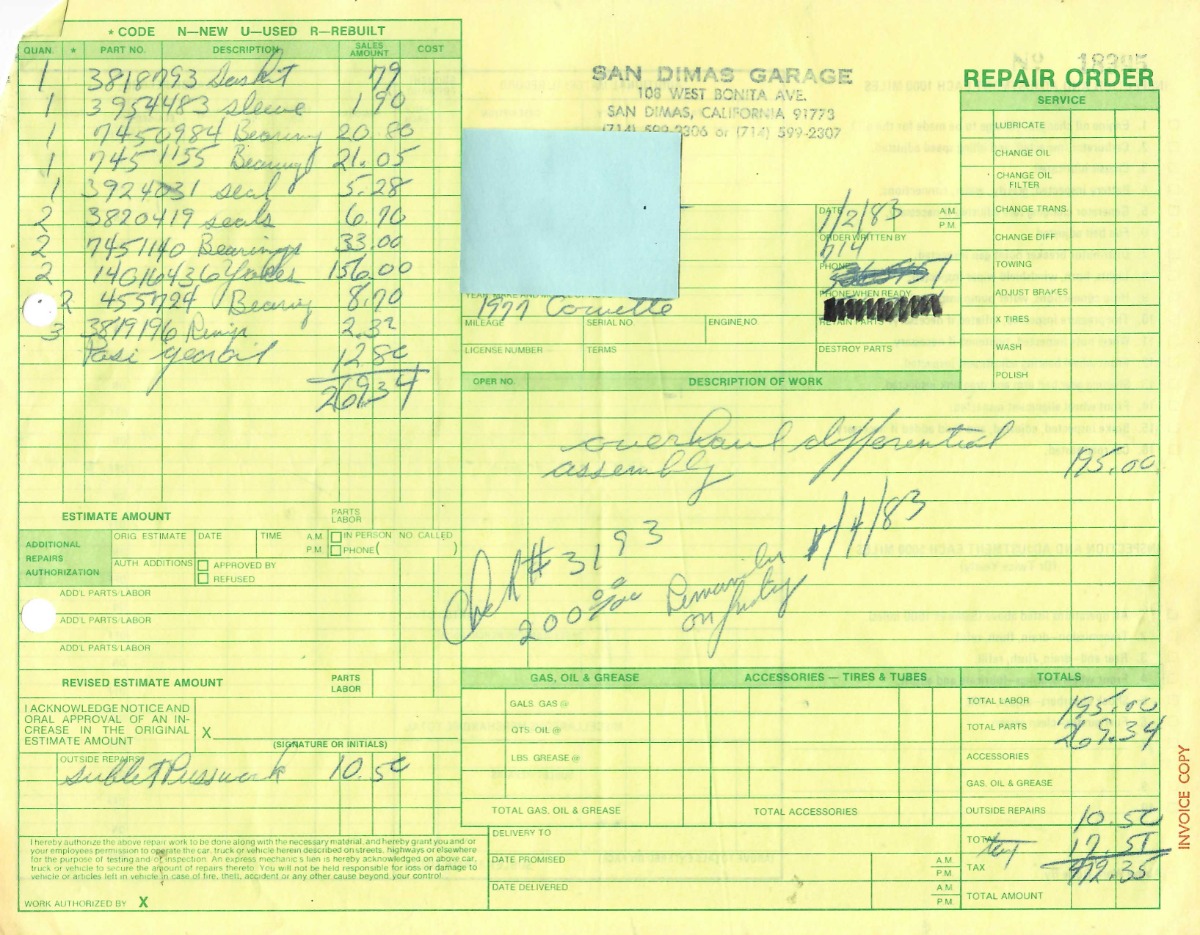 * CODE N—NEW U—USED R—REBUILT
QUAN. * PART NO. DESCRIPTION SALES AMOUNT COST
1 3818793 Gasket 79
1 3954483 sleeve 1 90
1 7450984 Bearing 20.80
1 7451155 Bearing 21.05
1 3924031 seal 5.28
2 3820419 seals 6.70
2 7451140 Bearings 33.00
2 14016436 Yokes 156.00
2 455724 Bearing 8.70
3 3819196 Rings 2.32
Posi gear oil 12 80
269.34
ESTIMATE AMOUNT PARTS LABOR
ADDITIONAL REPAIRS AUTHORIZATION
ORIG. ESTIMATE DATE TIME A.M. P.M. IN PERSON NO. CALLED PHONE ( )
AUTH. ADDITIONS APPROVED BY REFUSED
ADD'L PARTS/LABOR
ADD'L PARTS/LABOR
ADD'L PARTS/LABOR
REVISED ESTIMATE AMOUNT PARTS LABOR
I ACKNOWLEDGE NOTICE AND
ORAL APPROVAL OF AN IN-
CREASE IN THE ORIGINAL
ESTIMATE AMOUNT
X
(SIGNATURE OR INITIALS)
OUTSIDE REPAIRS
sublet 10.50
I hereby authorize the above repair work to be done along with the necessary material, and hereby grant you and/or
your employees permission to operate the car, truck or vehicle herein described on streets, highways or elsewhere
for the purpose of testing and/or inspection. An express mechanic's lien is hereby acknowledged on above car,
truck or vehicle to secure the amount of repairs thereto. You will not be held responsible for loss or damage to
vehicle or articles left in vehicle in case of fire, theft, accident or any other cause beyond your control.
WORK AUTHORIZED BY X
SAN DIMAS GARAGE
108 WEST BONITA AVE.
SAN DIMAS, CALIFORNIA 91773
(714) 599-2306 or (714) 599-2307
REPAIR ORDER
DATE 1/2/83 A.M. P.M.
ORDER WRITTEN BY
714
PHONE
PHONE WHEN READY
1977 Corvette
RETAIN PARTS
MILEAGE SERIAL NO. ENGINE NO.
LICENSE NUMBER TERMS DESTROY PARTS
SERVICE
LUBRICATE
CHANGE OIL
CHANGE OIL FILTER
CHANGE TRANS.
CHANGE DIFF
TOWING
ADJUST BRAKES
X TIRES
WASH
POLISH
OPER NO. DESCRIPTION OF WORK
overhaul differential
assembly 195.00
Check # 3193 1/4/83
200 00/00 Remainder
on
GAS, OIL & GREASE
GALS. GAS @
QTS. OIL @
LBS. GREASE @
TOTAL GAS, OIL & GREASE
ACCESSORIES — TIRES & TUBES
TOTAL ACCESSORIES
TOTALS
TOTAL LABOR 195.00
TOTAL PARTS 269.34
ACCESSORIES
GAS, OIL & GREASE
OUTSIDE REPAIRS 10.50
tax 17.51
TAX
TOTAL AMOUNT
DELIVERY TO
DATE PROMISED A.M. P.M.
DATE DELIVERED A.M. P.M.
INVOICE COPY